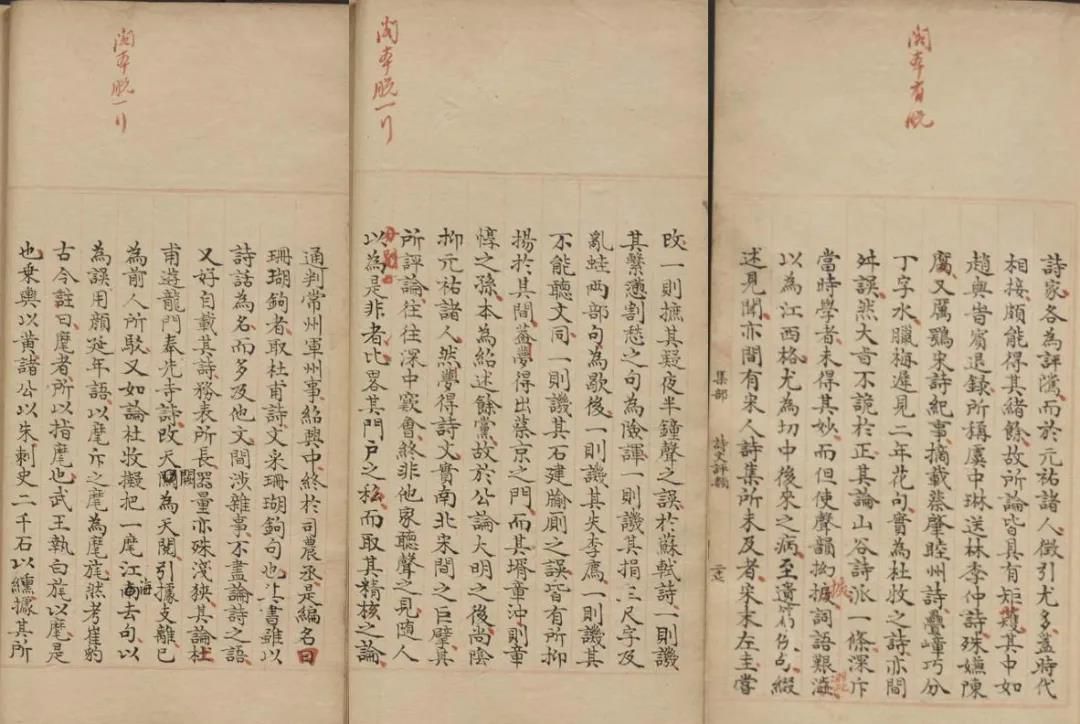 閣本脫一行
通判常州軍州事紹興中終於司農丞是編名曰
珊瑚鉤者取杜甫詩文采珊瑚鉤句也其書雖以
詩話為名而多及他文間涉雜事不盡論詩之語
又好自載其詩務表所長器量亦殊淺狹其論杜
甫遊龍門奉先寺詩改天闕為天閱引據支離已
為前人所駁又如論杜牧擬把一麾江海去句以
為誤用顏延年語以麾斥之麾為麾旄然考崔豹
古今註曰麾者所以指麾也武王執白旄以麾是
也乘輿以黃諸公以朱刺史二千石以纁據其所
閣本脫一行
改一則摭其疑夜半鐘聲之誤於蘇軾詩一則譏
其繫懣割愁之句為險諢一則譏其捐三尺字及
亂蛙兩部句為歇後一則譏其失李廌一則譏其
不能聽文同一則譏其石建牏廁之誤皆有所抑
揚於其間蓋夢得出蔡京之門而其壻章沖則章
惇之孫本為紹述餘黨故於公論大明之後尚陰
抑元祐諸人然夢得詩文實南北宋間之巨擘其
所評論往往深中窾會終非他家聽聲之見隨人
以為是非者比畧其門戶之私而取其精核之論
閣本有脫
詩家各為評騭而於元祐諸人徵引尤多蓋時代
相接頗能得其緒餘故所論皆具有矩矱其中如
趙與旹賓退錄所稱虞中琳送林季仲詩殊嫌陳
腐又厲鶚宋詩紀事摘載蔡肇睦州詩疊嶂巧分
丁字水臘梅遲見二年花句實為杜牧之詩亦間
舛誤然大旨不詭於正其論山谷詩派一條深斥
當時學者未得其妙而但使聲韻拗捩詞語艱澁
以為江西格尤為切中後來之病至遺篇佚句綴
述見聞亦間有宋人詩集所未及者宋末左圭嘗
集部 詩文評類